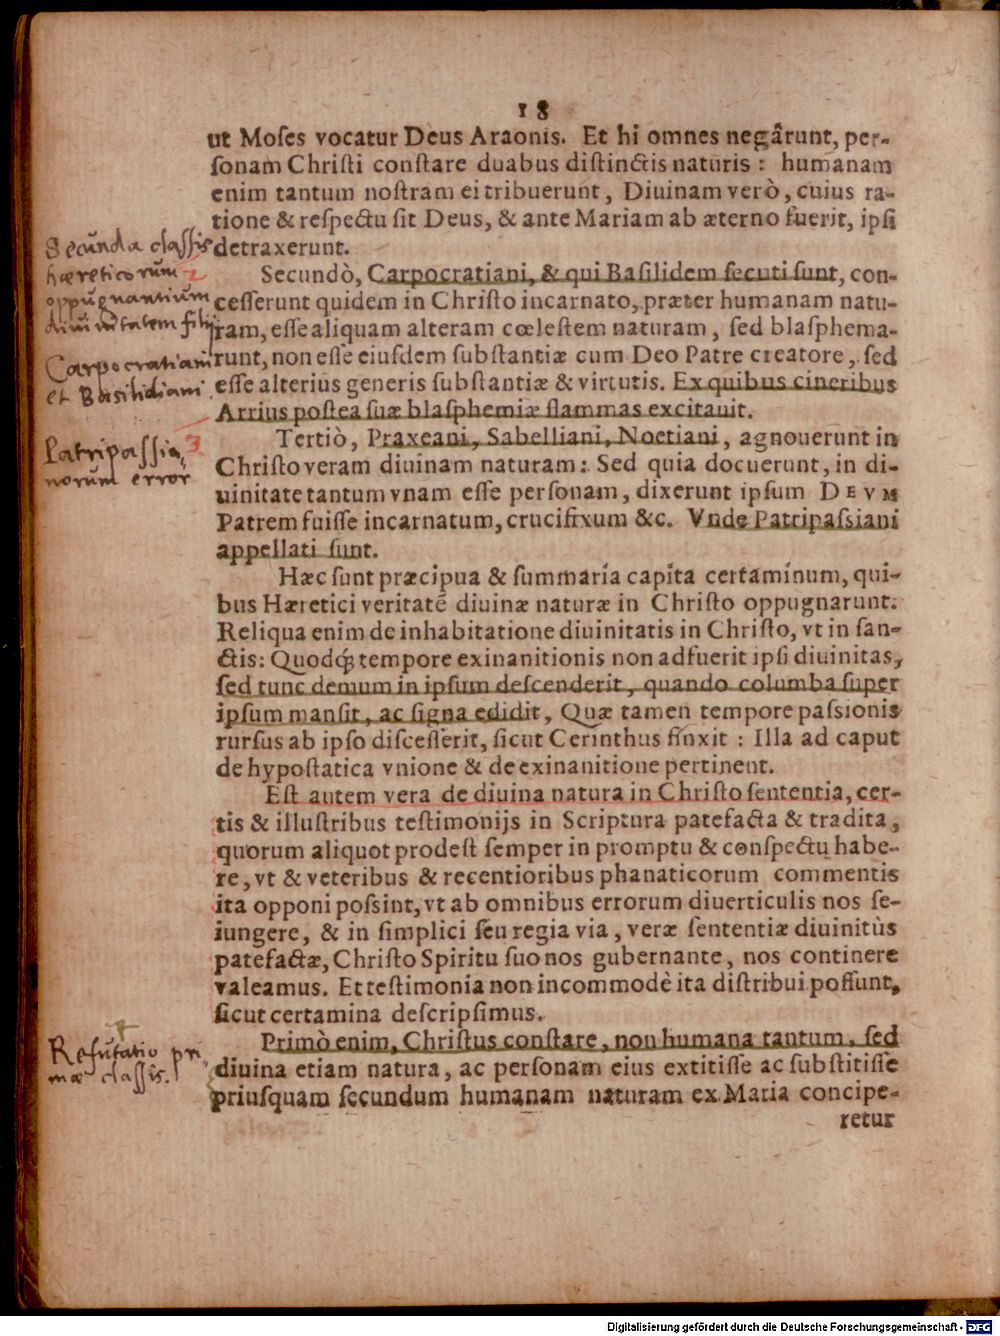 18
ut Moſes vocatur Deus Araonis. Et hi omnes negârunt, per-
ſonam Chriſti conſtare duabus diſtinctis naturis: humanam
enim tantum noſtram ei tribuerunt, Diuinam verò, cuius ra-
tione & reſpectu ſit Deus, & ante Mariam ab æterno fuerit, ipſi
detraxerunt.
Secunda claſſis
hæreticorum 2
oppugnantium
diuinitatem filij
Carpocratiani
et Basilidiani
Secundò, Carpocratiani, & qui Baſilidem ſecuti ſunt, con-
ceſſerunt quidem in Chriſto incarnato, præter humanam natu-
ram, eſſe aliquam alteram cœleſtem naturam, ſed blaſphema-
runt, non eſſe eiuſdem ſubſtantiæ cum Deo Patre creatore, ſed
eſſe alterius generis ſubſtantiæ & virtutis. Ex quibus cineribus
Arrius poſtea ſuæ blaſphemiæ flammas excitauit.
Patripaſſia, 3
norum error
Tertiò, Praxeani, Sabelliani, Noetiani, agnouerunt in
Chriſto veram diuinam naturam: Sed quia docuerunt, in di-
uinitate tantum vnam eſſe perſonam, dixerunt ipſum DEVM
Patrem fuiſſe incarnatum, crucifixum &c. Vnde Patripaſsiani
appellati ſunt.
Hæc ſunt præcipua & ſummaria capita certaminum, qui-
bus Hæretici veritatē diuinæ naturæ in Chriſto oppugnarunt.
Reliqua enim de inhabitatione diuinitatis in Chriſto, vt in ſan-
ctis: Quodq́; tempore exinanitionis non adfuerit ipſi diuinitas,
ſed tunc demum in ipſum deſcenderit, quando columba ſuper
ipſum manſit, ac ſigna edidit, Quæ tamen tempore paſsionis
rurſus ab ipſo diſceſſerit, ſicut Cerinthus finxit: Illa ad caput
de hypoſtatica vnione & de exinanitione pertinent.
Eſt autem vera de diuina natura in Chriſto ſententia, cer-
tis & illuſtribus teſtimonijs in Scriptura patefacta & tradita,
quorum aliquot prodeſt ſemper in promptu & conſpectu habe-
re, vt & veteribus & recentioribus phanaticorum commentis
ita opponi poſsint, vt ab omnibus errorum diuerticulis nos ſe-
iungere, & in ſimplici ſeu regia via, veræ ſententiæ diuinitùs
patefactæ, Chriſto Spiritu ſuo nos gubernante, nos continere
valeamus. Et teſtimonia non incommodè ita diſtribui poſſunt,
ſicut certamina deſcripſimus.
Refutatio pri
mæ claſſis.
Primò enim, Chriſtus conſtare, non humana tantum, ſed
diuina etiam natura, ac perſonam eius extitiſſe ac ſubſtitiſſe
priuſquam ſecundum humanam naturam ex Maria concipe-
retur
Digitalisierung gefördert durch die Deutsche Forschungsgemeinschaft - DFG